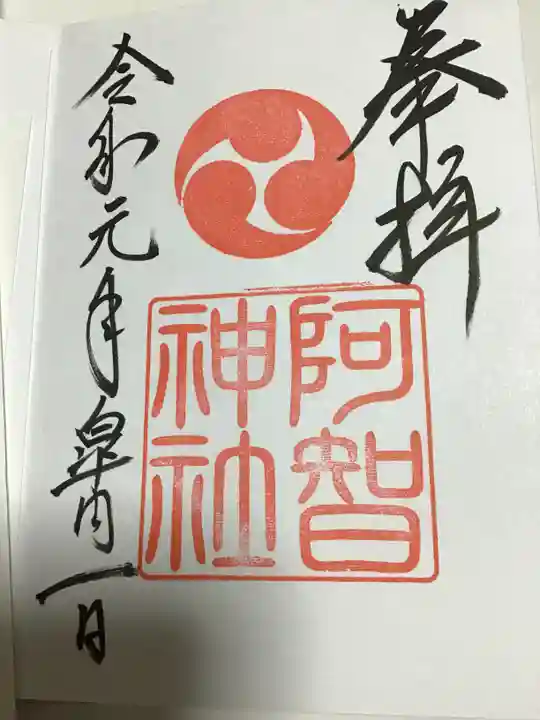 奉拝
阿智
神社
令和元年皐月一日